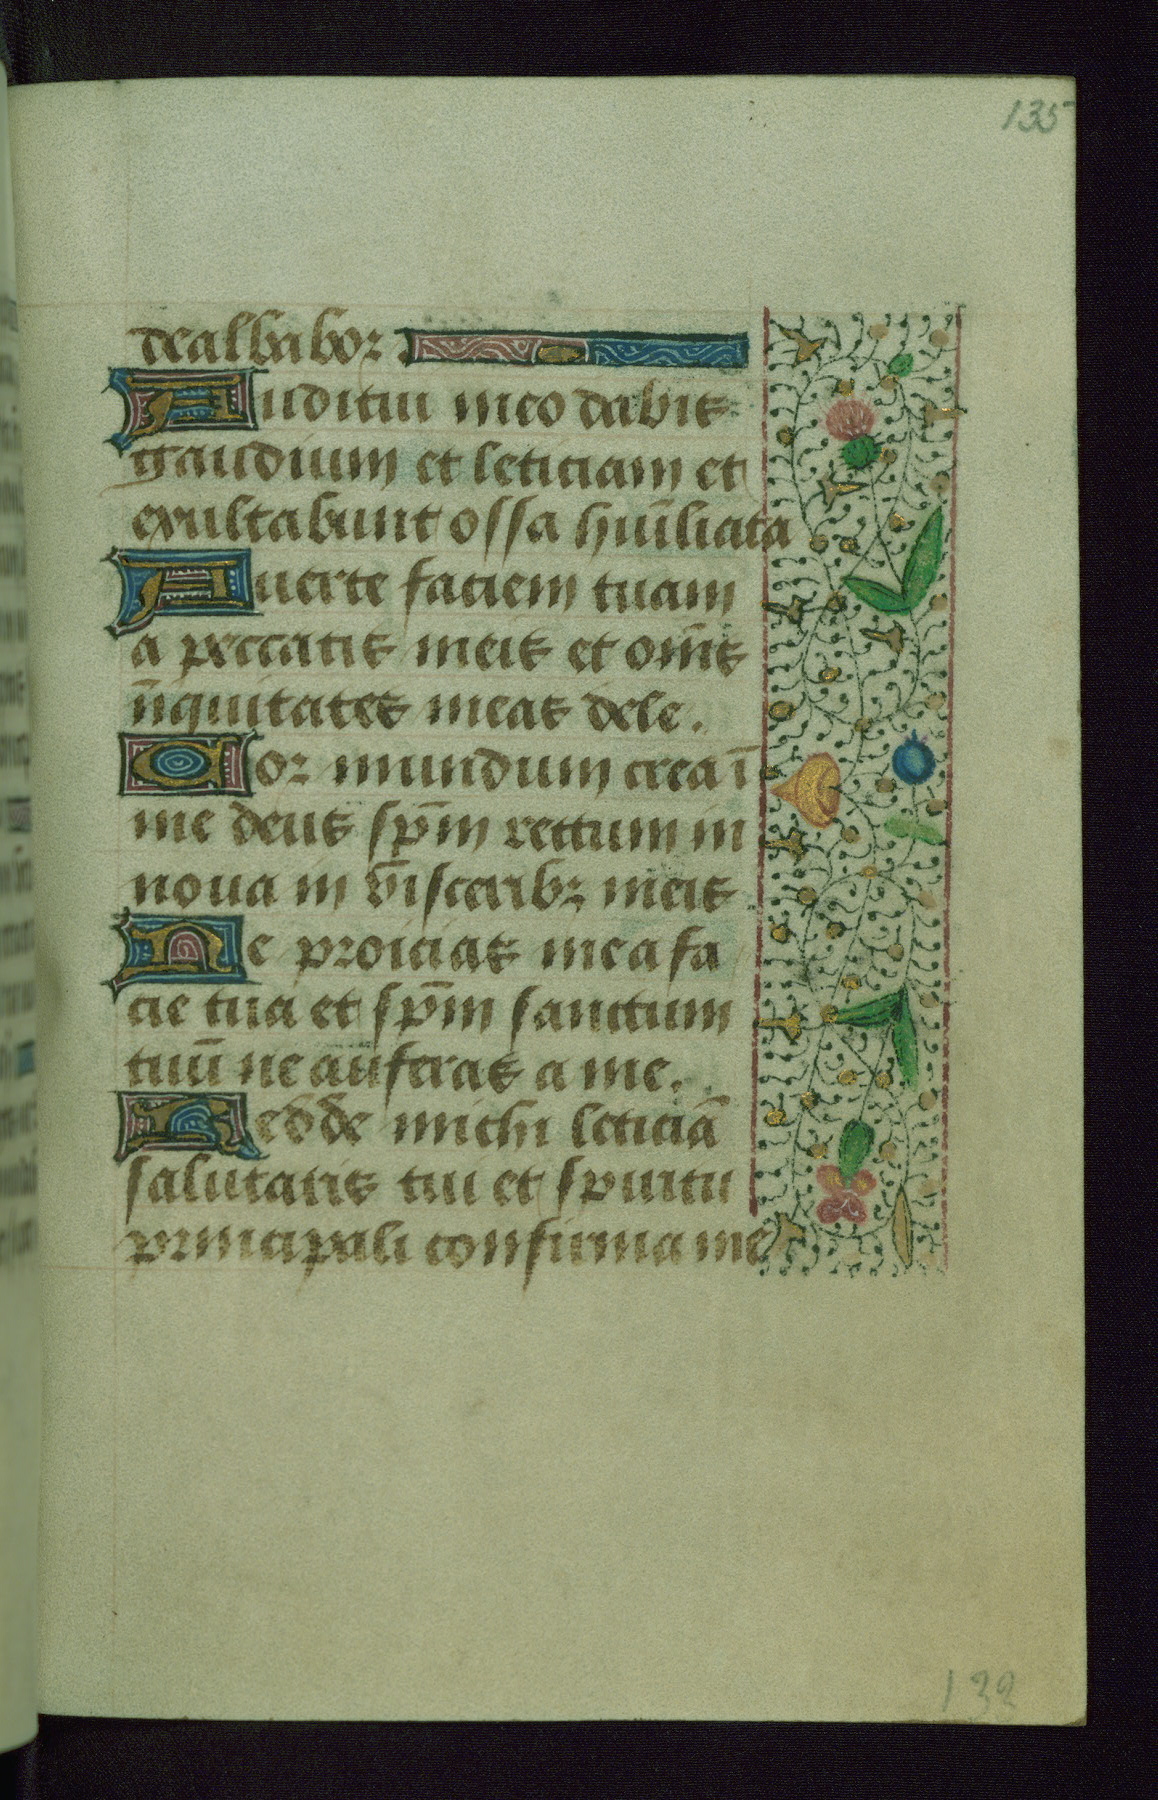 135
dealbabor
Auditui meo dabis
gaudium et leticiam et
exultabunt ossa huīliata
Auerte faciem tuam
a peccatis meis et om̄s
iīquitates meas dele.
Cor mundum crea ī
me deus sp̄m rectum in
noua in v̄isceribꝫ meis
Ne proicias me a fa
cie tua et sp̄m sanctum
tuū ne auferas a me.
Redde michi leticiā
salutaris tui et spiritu
principali confirma me
132